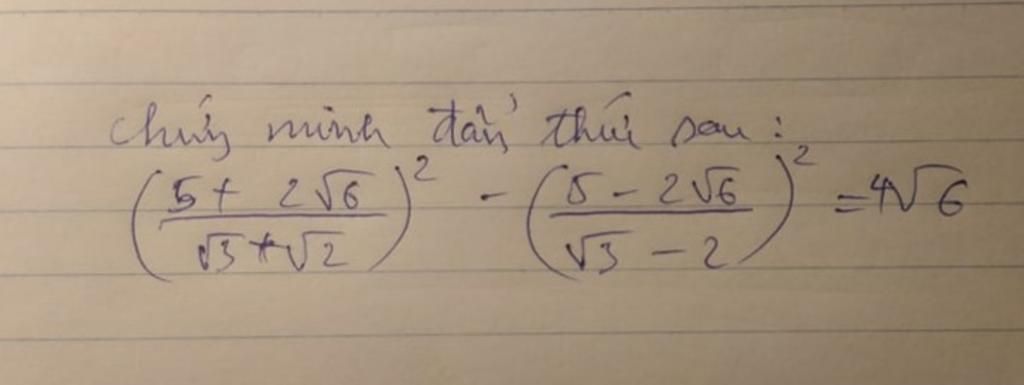 chứng minh đẳng thức sau:
(\frac{5 + 2\sqrt{6}}{\sqrt{3} + \sqrt{2}})^2 - (\frac{5 - 2\sqrt{6}}{\sqrt{3} - 2})^2 = 4\sqrt{6}